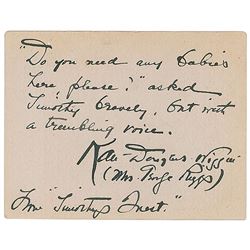 "Do you need any babies
here please?" asked
Timothy bravely, but with
a trembling voice.
Kate Douglas Wiggin
(Mrs George Riggs)
From "Timothy's Quest."